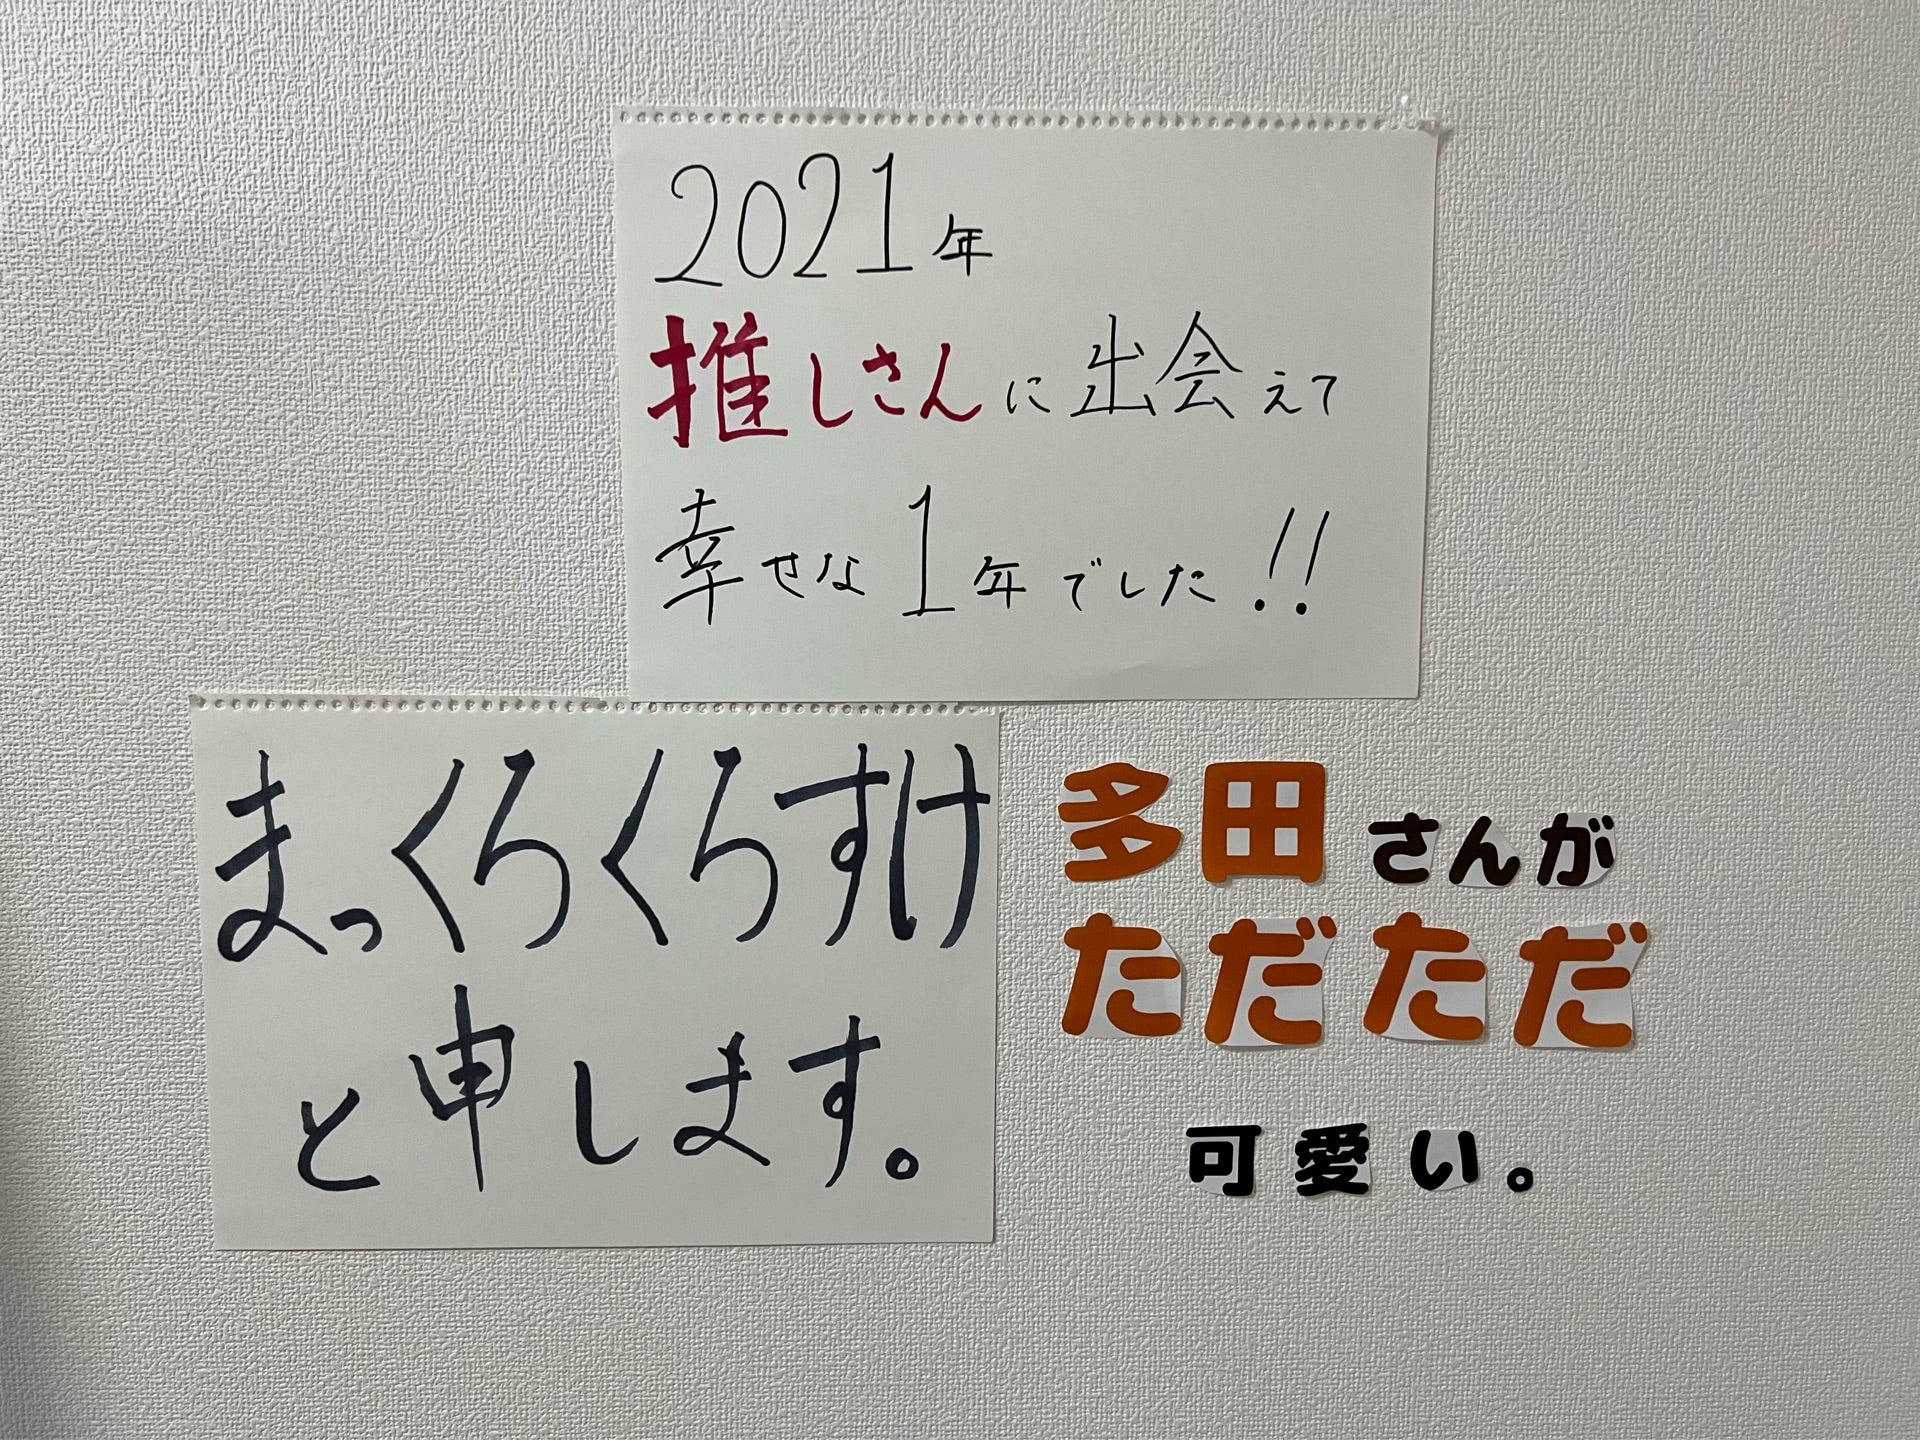 2021年
推しさんに出会えて
幸せな1年でした!!
まっくろくろすけ
と申します。
多田さんが
ただただ
可愛い。